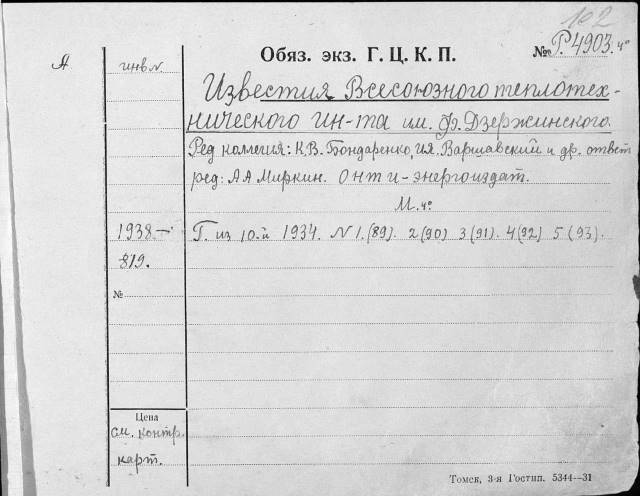 102
Обяз. экз. Г. Ц. К. П.
№ Р.4903. 4°
А
инв №.
Известия Всесоюзного теплотех-
нического ин-та им. Ф. Дзержинского.
Ред коллегия: К.В. Бондаренко, И.Я. Варшавский и др. ответ
ред: А А Миркин. Онти-энергоиздат.
М. 4°
1938.—
Г. из 10-й 1934. N 1.(89). 2(90) 3(91). 4(92) 5(93).
819.
№
Цена
см. контр.
карт.
Томск, 3-я Гостип. 5344—31